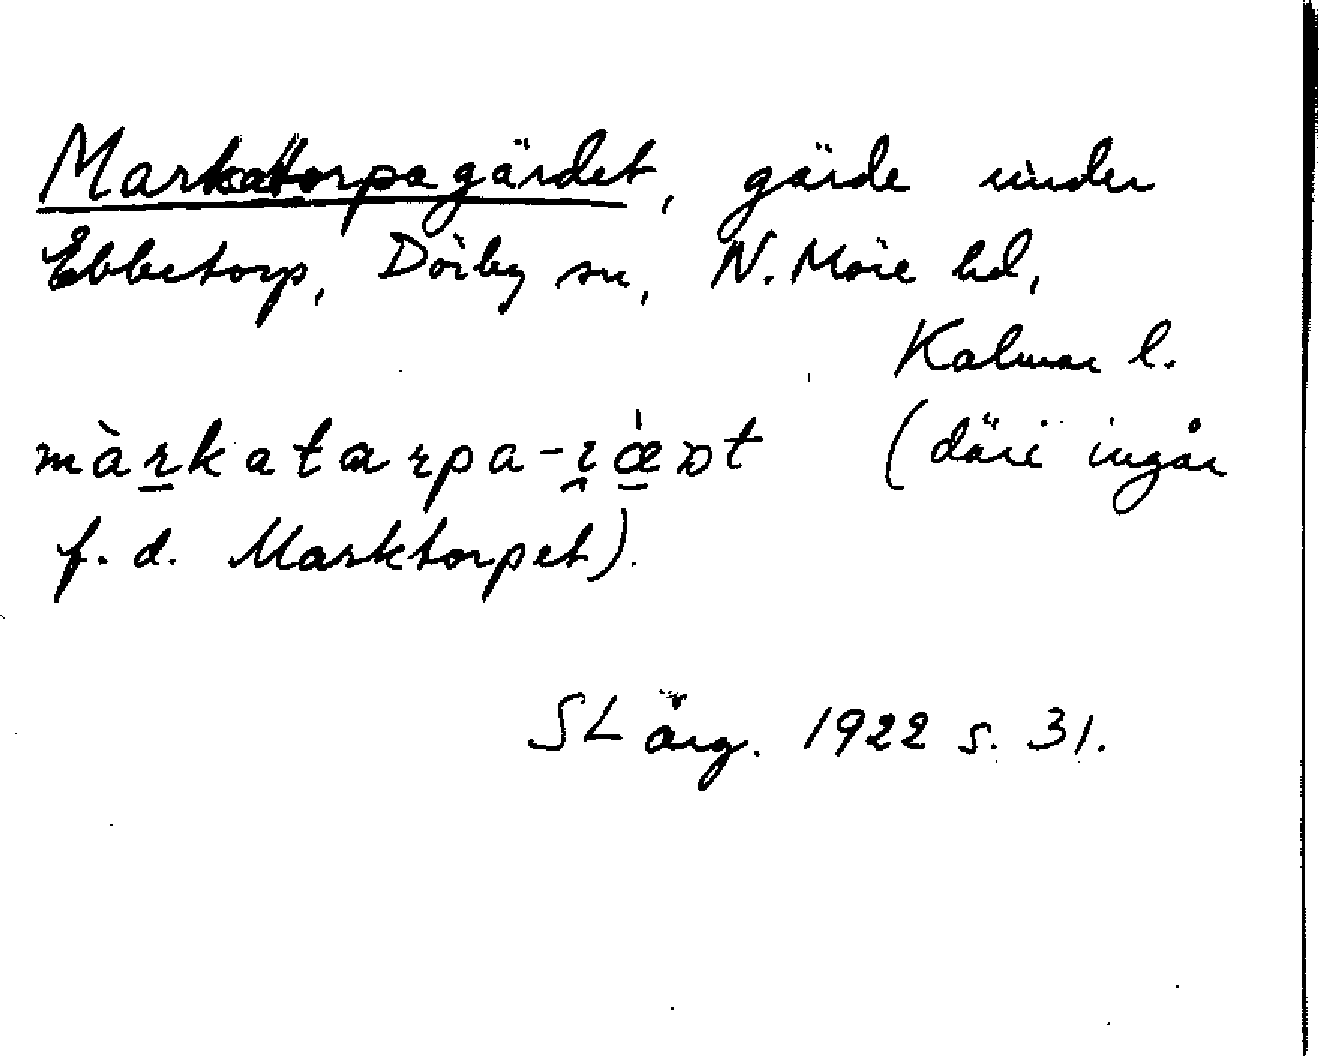 Markatorpagärdet, gärde under
Ebbetorp, Dörby sn, N. Möre hd,
Kalmar l.
màrkatarpa-ɪæ̀ɒt (däri ingår
f. d. Marktorpet).
SL årg. 1922 s. 31.